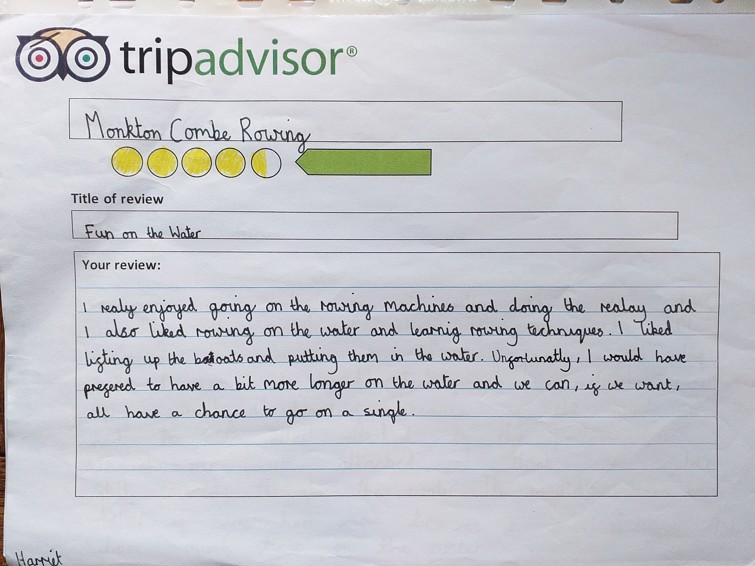 tripadvisor®
Monkton Combe Rowing
Title of review
Fun on the Water
Your review:
I realy enjoyed going on the rowing machines and doing the realay and
I also liked rowing on the water and learnig rowing techniques. I liked
lifting up the boats and putting them in the water. Unfortunatly, I would have
prefered to have a bit more longer on the water and we can, if we want,
all have a chance to go on a single.
Harriet